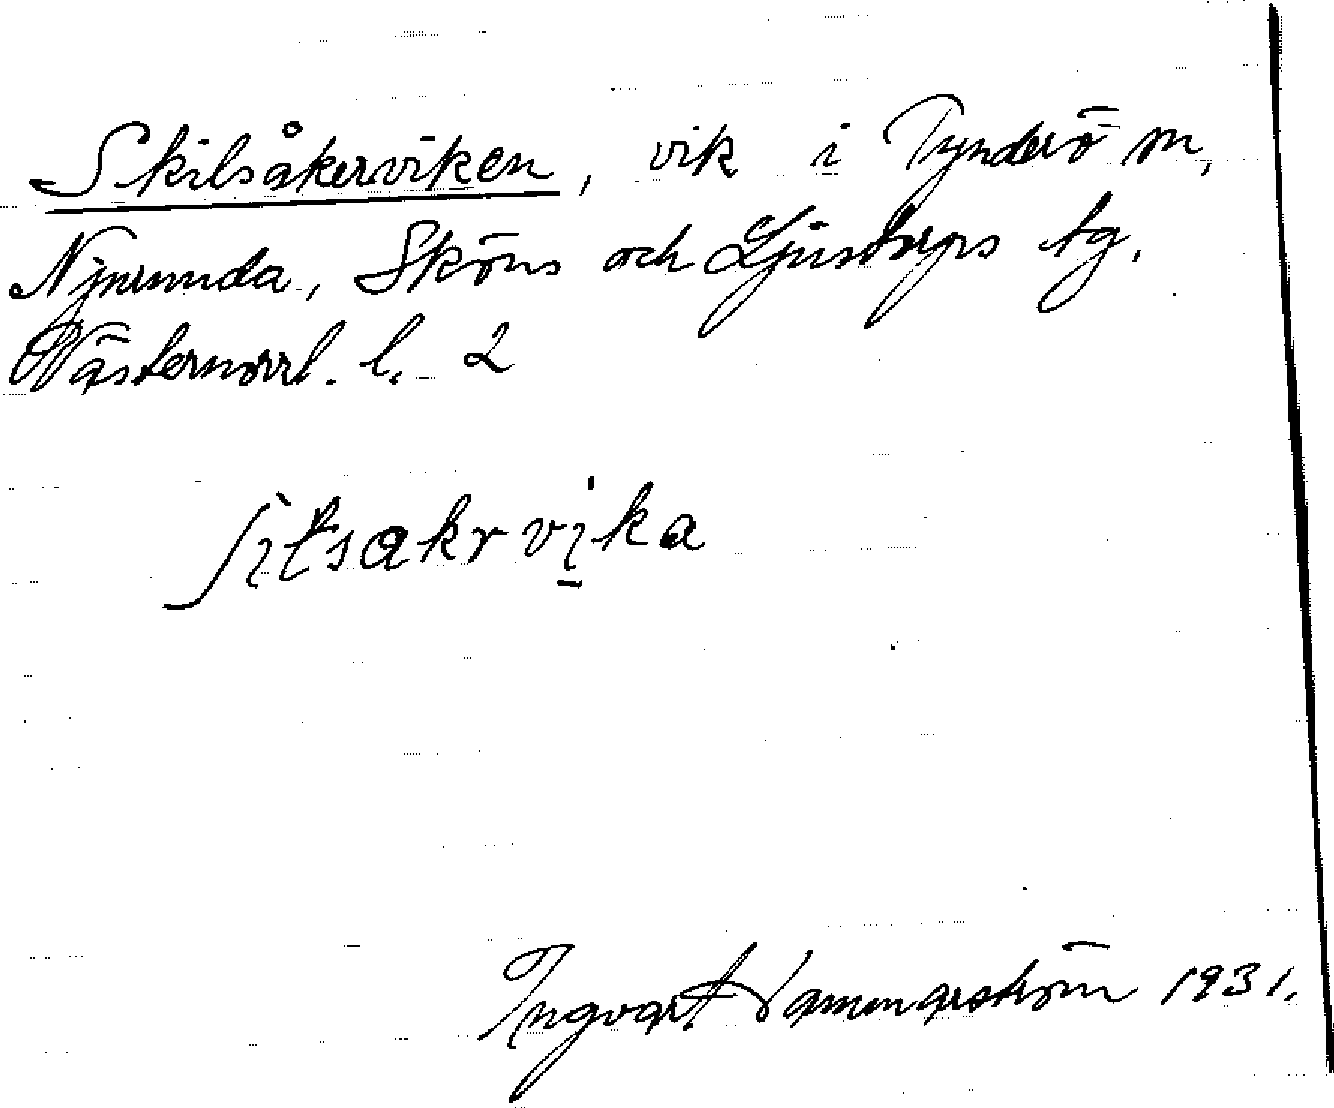 Skilsåkerviken, vik i Tynderö sn,
Njurunda, Sköns och Ljustorps tg.
Västernorrl. l. 2
ʃilsakrvika
Ingvart Hammarström 1931.